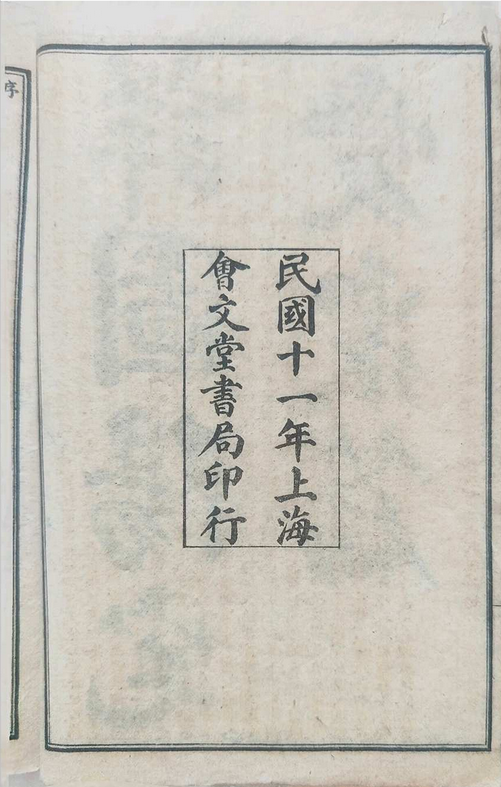 民國十一年上海
會文堂書局印行
序